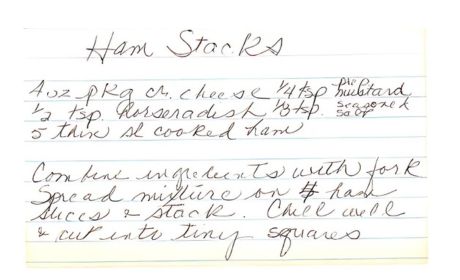 Ham Stacks
4 oz pkg cr. cheese 1/4 tsp prep mustard
1/2 tsp. horseradish 1/8 tsp. seasoned salt
5 thin sl cooked ham
Combine ingredients with fork
Spread mixture on ham
slices & stack. Chill well
& cut into tiny squares